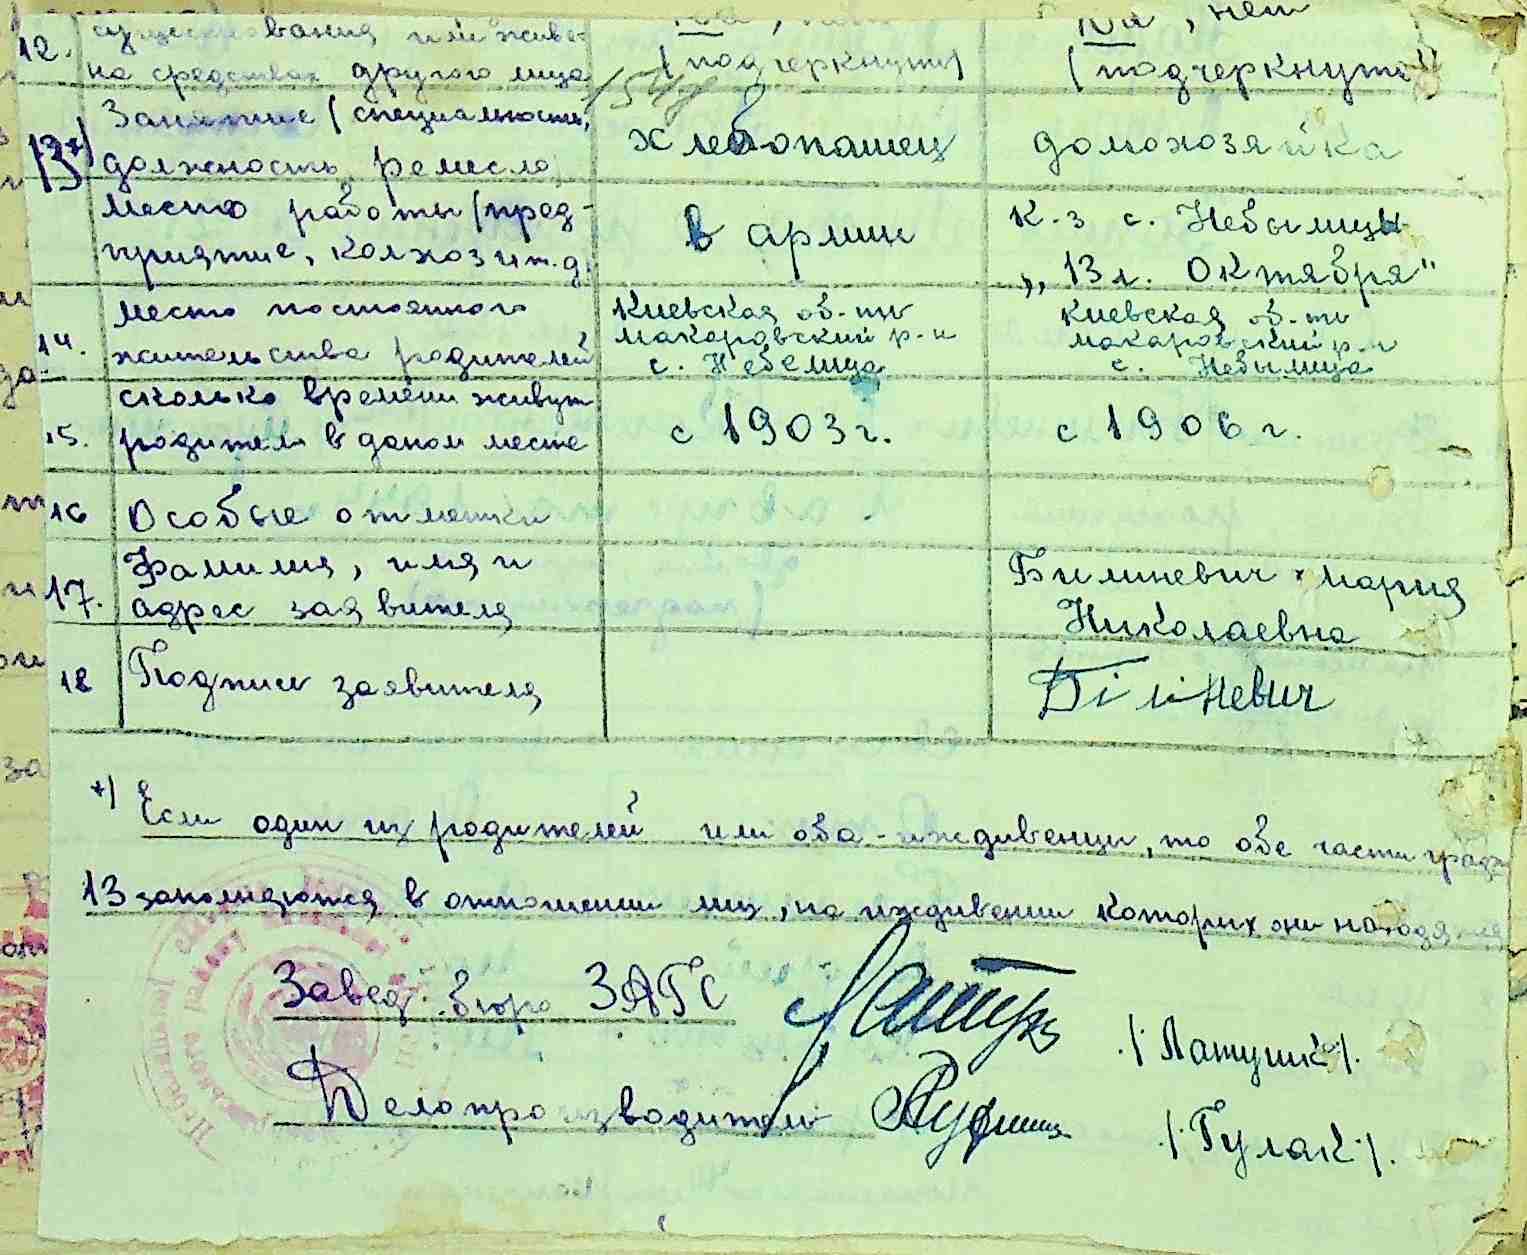 12. существования или живе-
на средства другого лица
да, нет
(подчеркнуть)
да, нет
(подчеркнуть)
13*) Занятие (специальность,
должность, ремесло,
хлебопашец
домохозяйка
место работы (пред-
приятие, колхоз и т.д.
в армии
к-з с. Небылицы
„13 л. Октября"
14. место постоянного
жительства родителей
Киевская об-ти
макаровский р-н
с. Небелица
Киевская об-ти
макаровский р-н
с. Небылица
15. сколько времени живут
родители в даном месте
с 1903 г.
с 1906 г.
16 Особые отметки
17. Фамилия, имя и
адрес заявителя
Билиневич мария
Николаевна
18 Подписи заявителя
Біліневич
*) Если один из родителей или оба - иждивенци, то обе части граф
13 заполняются в отношении лиц, на иждивении которых они находя
Завед. бюро ЗАГС
/Латушк/.
Делопроизводитель
/Гулак/.